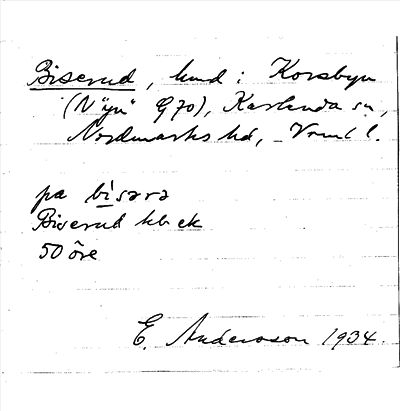 Biserud, hmd i Korsbyn
(N "yn" G 70), Karlanda sn,
Nordmarks hd, Vrml l.
på bìsərə
Biserud hb ek
50 öre
E. Andersson 1934.